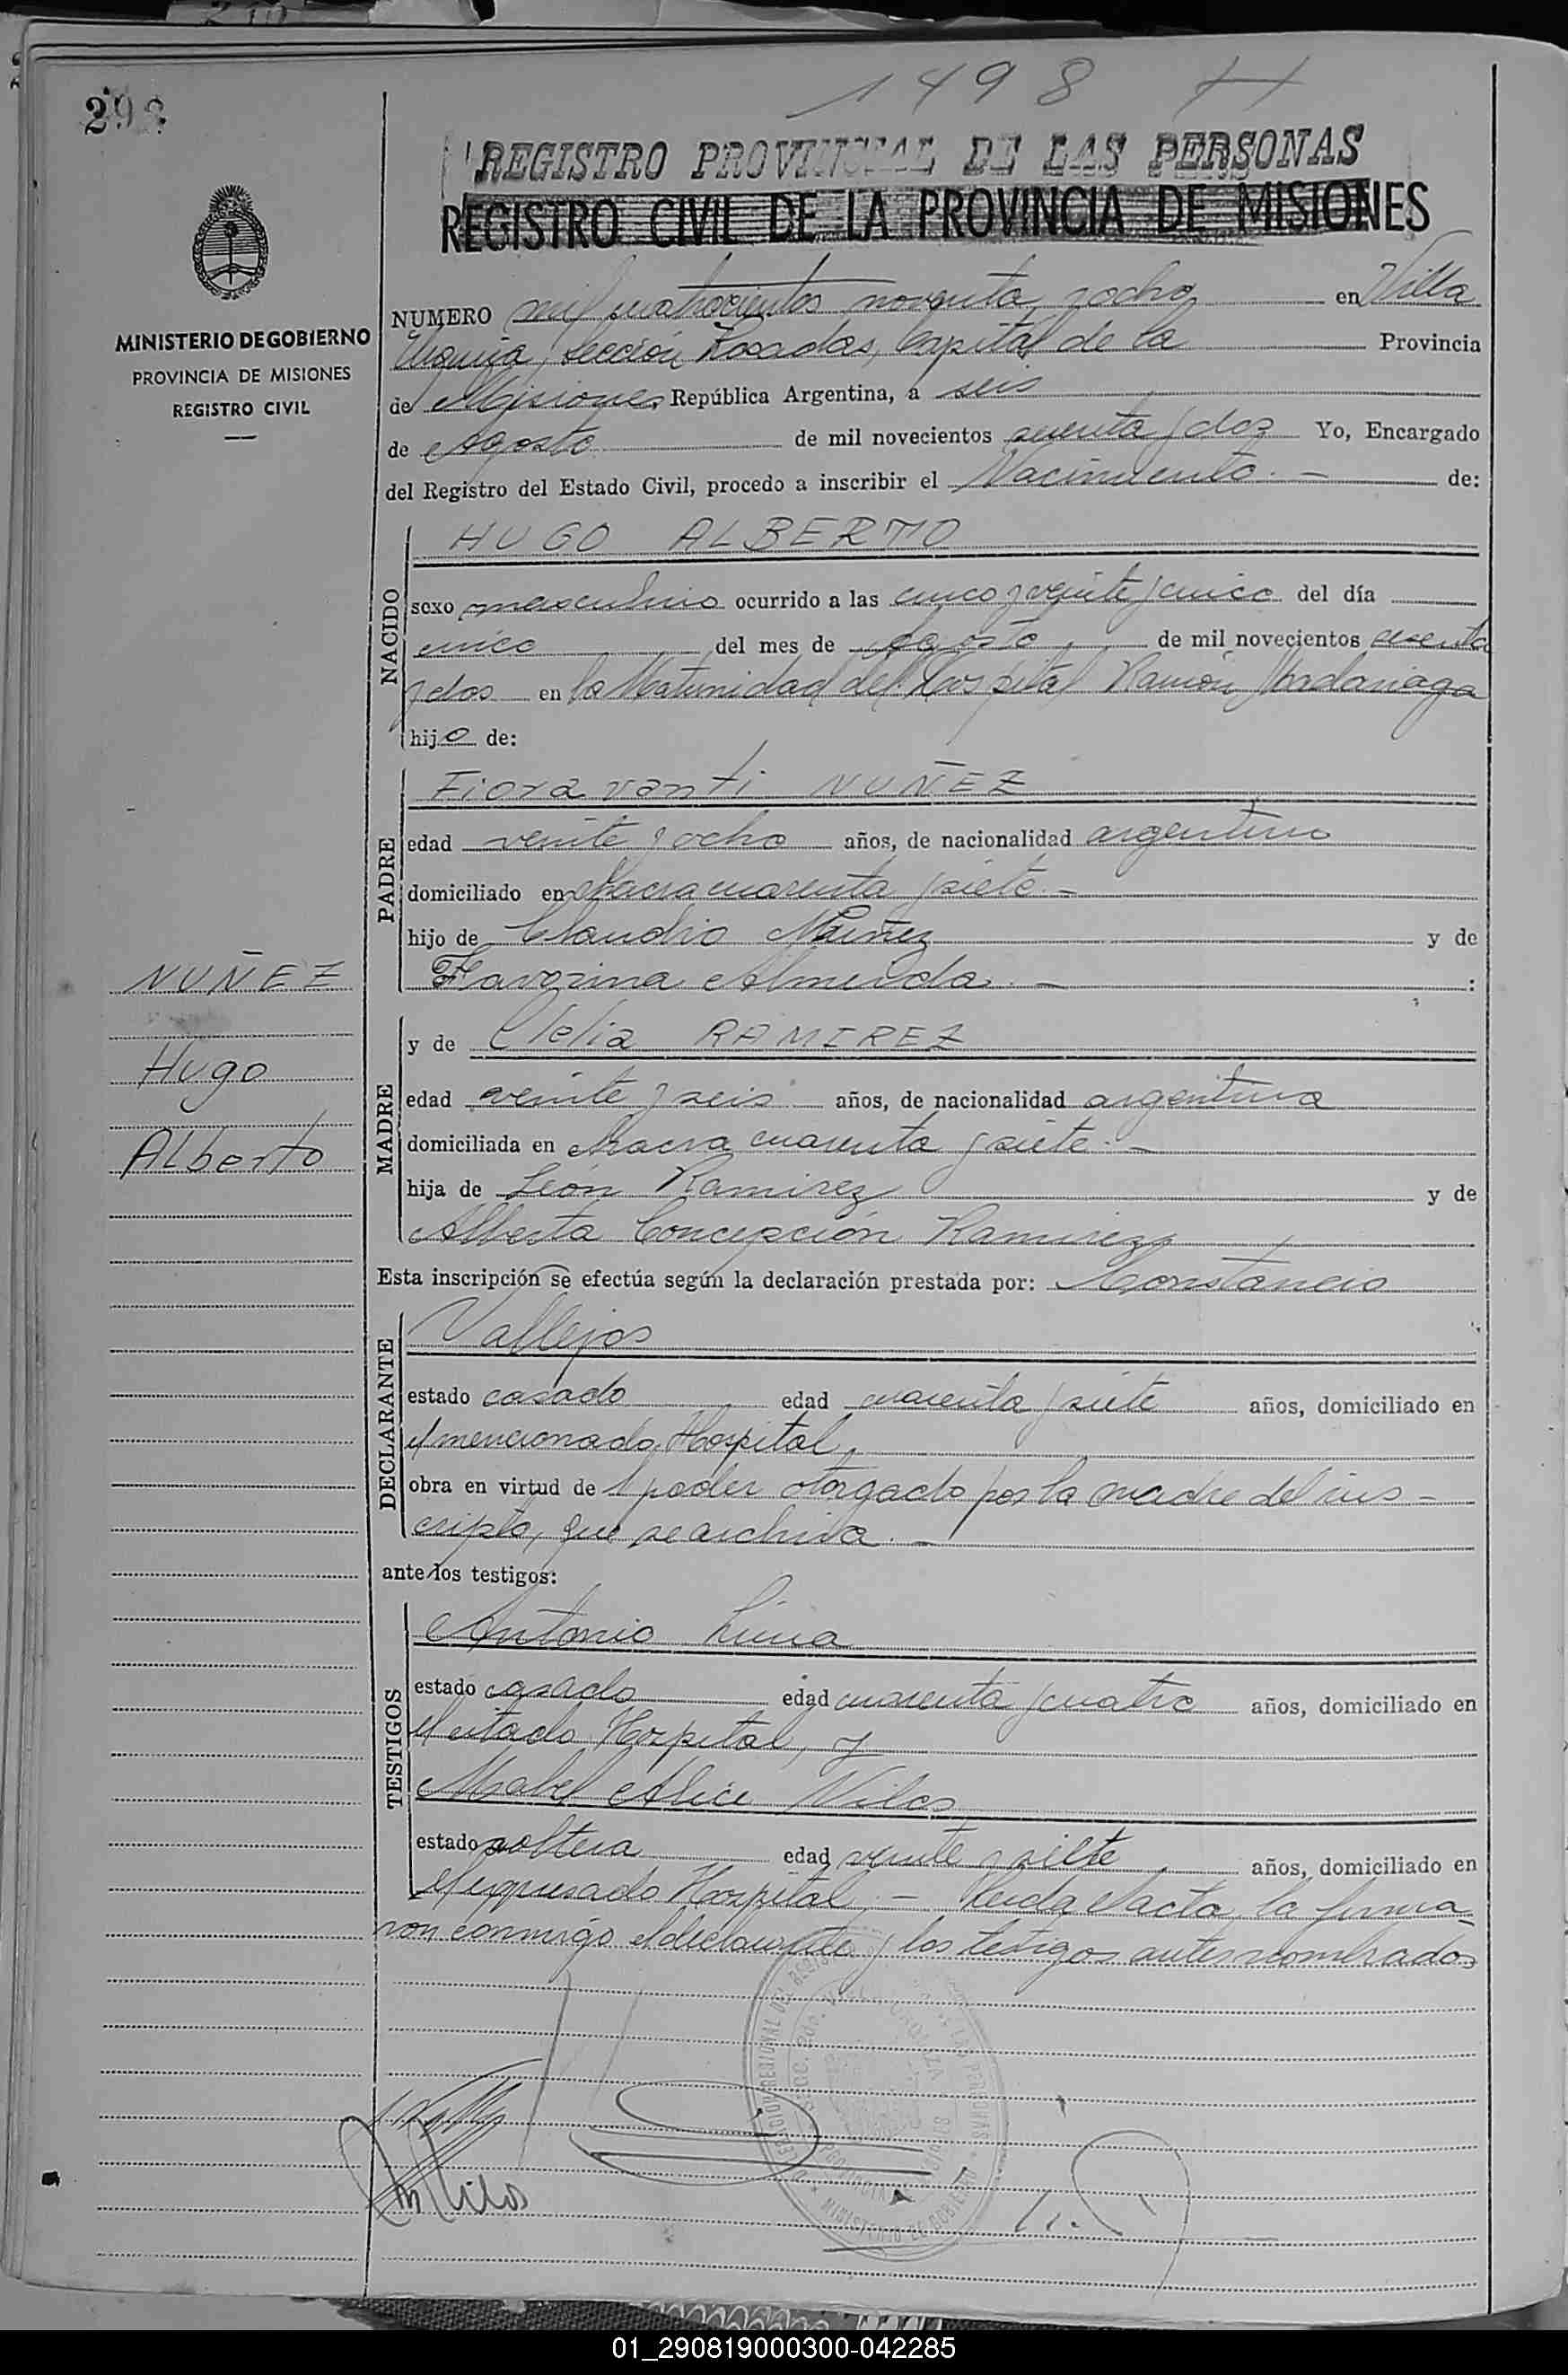 1498 H
298
REGISTRO PROVINCIAL DE LAS PERSONAS
REGISTRO CIVIL DE LA PROVINCIA DE MISIONES
MINISTERIO DE GOBIERNO
PROVINCIA DE MISIONES
REGISTRO CIVIL
NUMERO mil cuatrocientos noventa y ocho en Villa
Urquiza, Sección Posadas, Capital de la Provincia
de Misiones República Argentina, a seis
de Agosto de mil novecientos sesenta y dos Yo, Encargado
del Registro del Estado Civil, procedo a inscribir el Nacimiento.- de:
NACIDO
HUGO ALBERTO
sexo masculino ocurrido a las cinco y veinte y cinco del día
cinco del mes de Agosto de mil novecientos sesenta
y dos en la Maternidad del Hospital Ramón Madariaga
hijo de:
PADRE
Fioravanti NUÑEZ
edad veinte y ocho años, de nacionalidad argentino
domiciliado en Chacra cuarenta y siete.-
hijo de Claudio Nuñez y de
Flavorina Almeida.- :
MADRE
y de Clelia RAMIREZ
edad veinte y seis años, de nacionalidad argentina
domiciliada en Chacra cuarenta y siete.-
hija de León Ramirez y de
Alberta Concepción Ramirez
Esta inscripción se efectúa según la declaración prestada por: Constancio
DECLARANTE
Vallejos
estado casado edad cuarenta y siete años, domiciliado en
el mencionado Hospital,
obra en virtud de l poder otorgado por la madre del ins-
cripto, que se archiva.-
ante los testigos:
TESTIGOS
Antonio Luna
estado casado edad cuarenta y cuatro años, domiciliado en
el citado Hospital, y
Mabel Alice Vilas
estado soltera edad veinte y siete años, domiciliado en
el expresado Hospital.- Leida el acta, la firma-
ron conmigo el declarante y los testigos antes nombrados
NUÑEZ
Hugo
Alberto
01_290819000300-042285